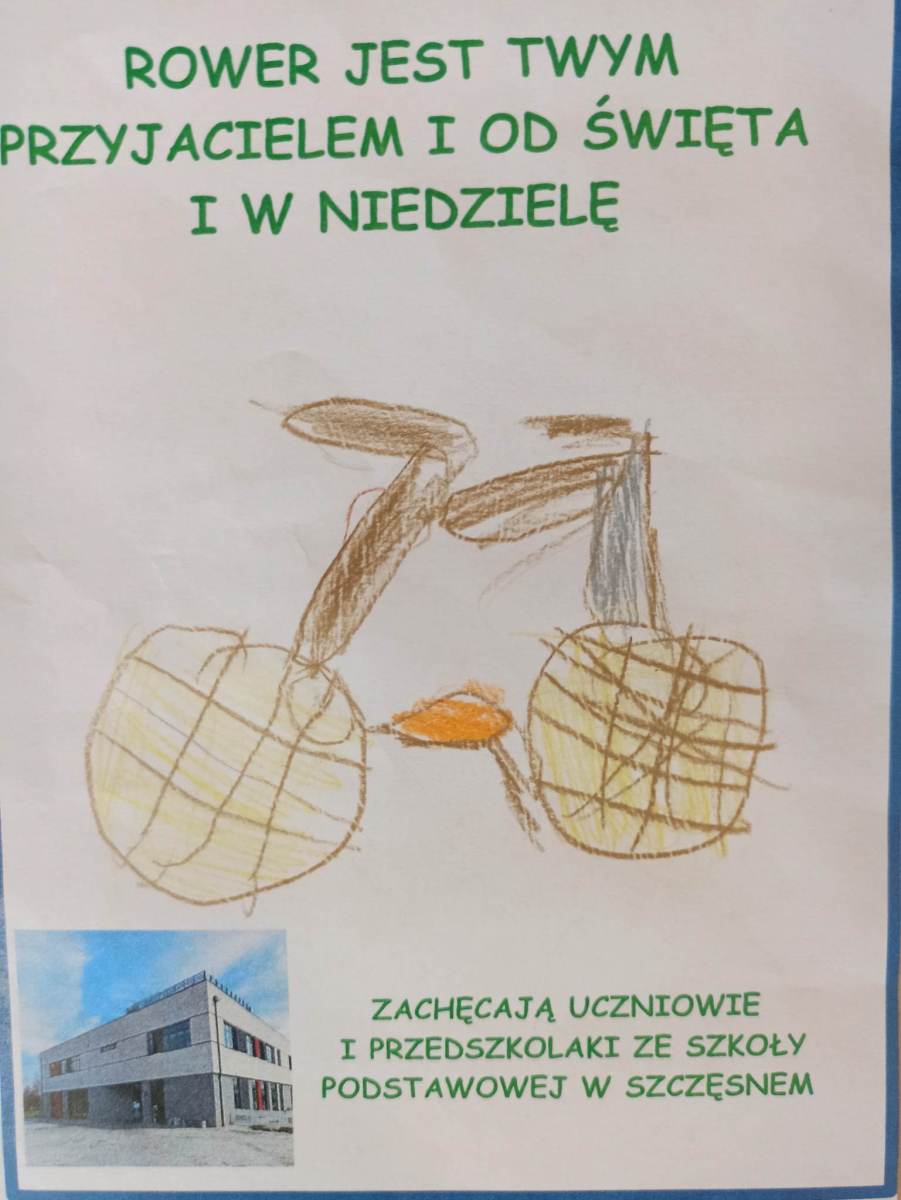 ROWER JEST TWYM
PRZYJACIELEM I OD ŚWIĘTA
I W NIEDZIELĘ
ZACHĘCAJĄ UCZNIOWIE
I PRZEDSZKOLAKI ZE SZKOŁY
PODSTAWOWEJ W SZCZĘSNEM